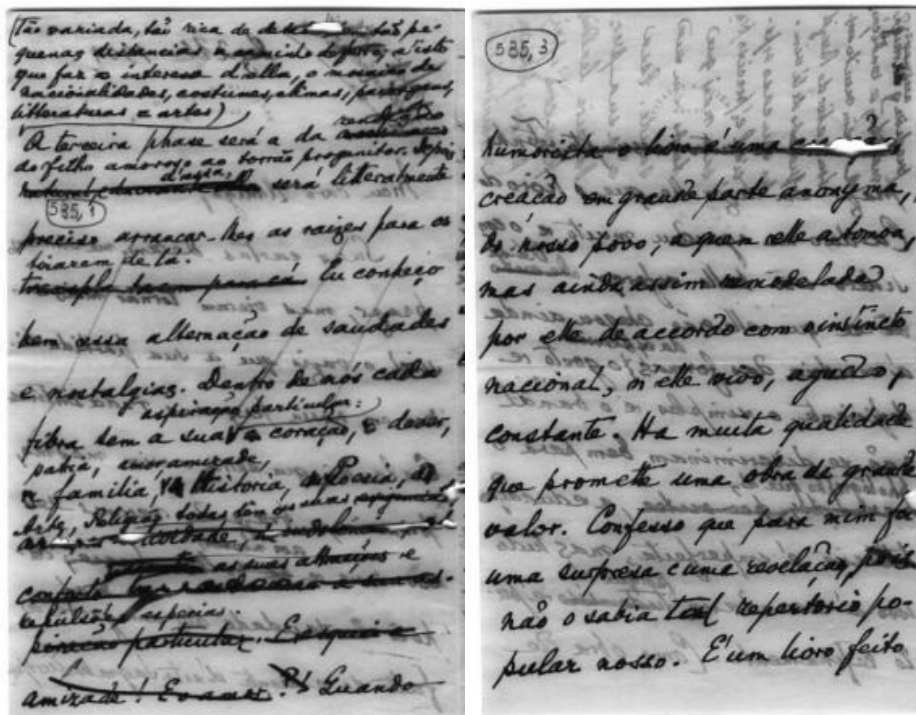 (Tão variada, tão rica de tão pe-
quenas distancias o caminho de ferro, é isto
que faz o interesse d'ella, o mosaico de
nacionalidades, costumes, climas, paizagens,
litteraturas e artes)
A terceira phase será a da
do filho amoroso ao torrão progenitor. Depois
d'essa, será litteralmente
585,1
preciso arrancar-lhes as raizes para os
tirarem de lá.
Eu conheço
bem essa alternação de saudades
e nostalgias. Dentro de nós cada
aspiração particular:
fibra tem a sua o coração, o dever,
patria, amor amizade,
a familia, a Historia, a Poesia, a
Arte, Religião, todas têm as suas
as suas attrações e
repulsões especiaes.
sineção particular.
amizade! E o amor? Quando
585,3
humorista o livro é uma
creação em grande parte anonyma,
do nosso povo, a quem elle a tomou,
mas ainda assim remodelada
por elle de accordo com o instincto
nacional, n'elle vivo, agudo,
constante. Ha muita qualidade
que promette uma obra de grande
valor. Confesso que para mim foi
uma surpresa e uma revelação, pois
não o sabia tal repertorio po-
pular nosso. É um livro feito